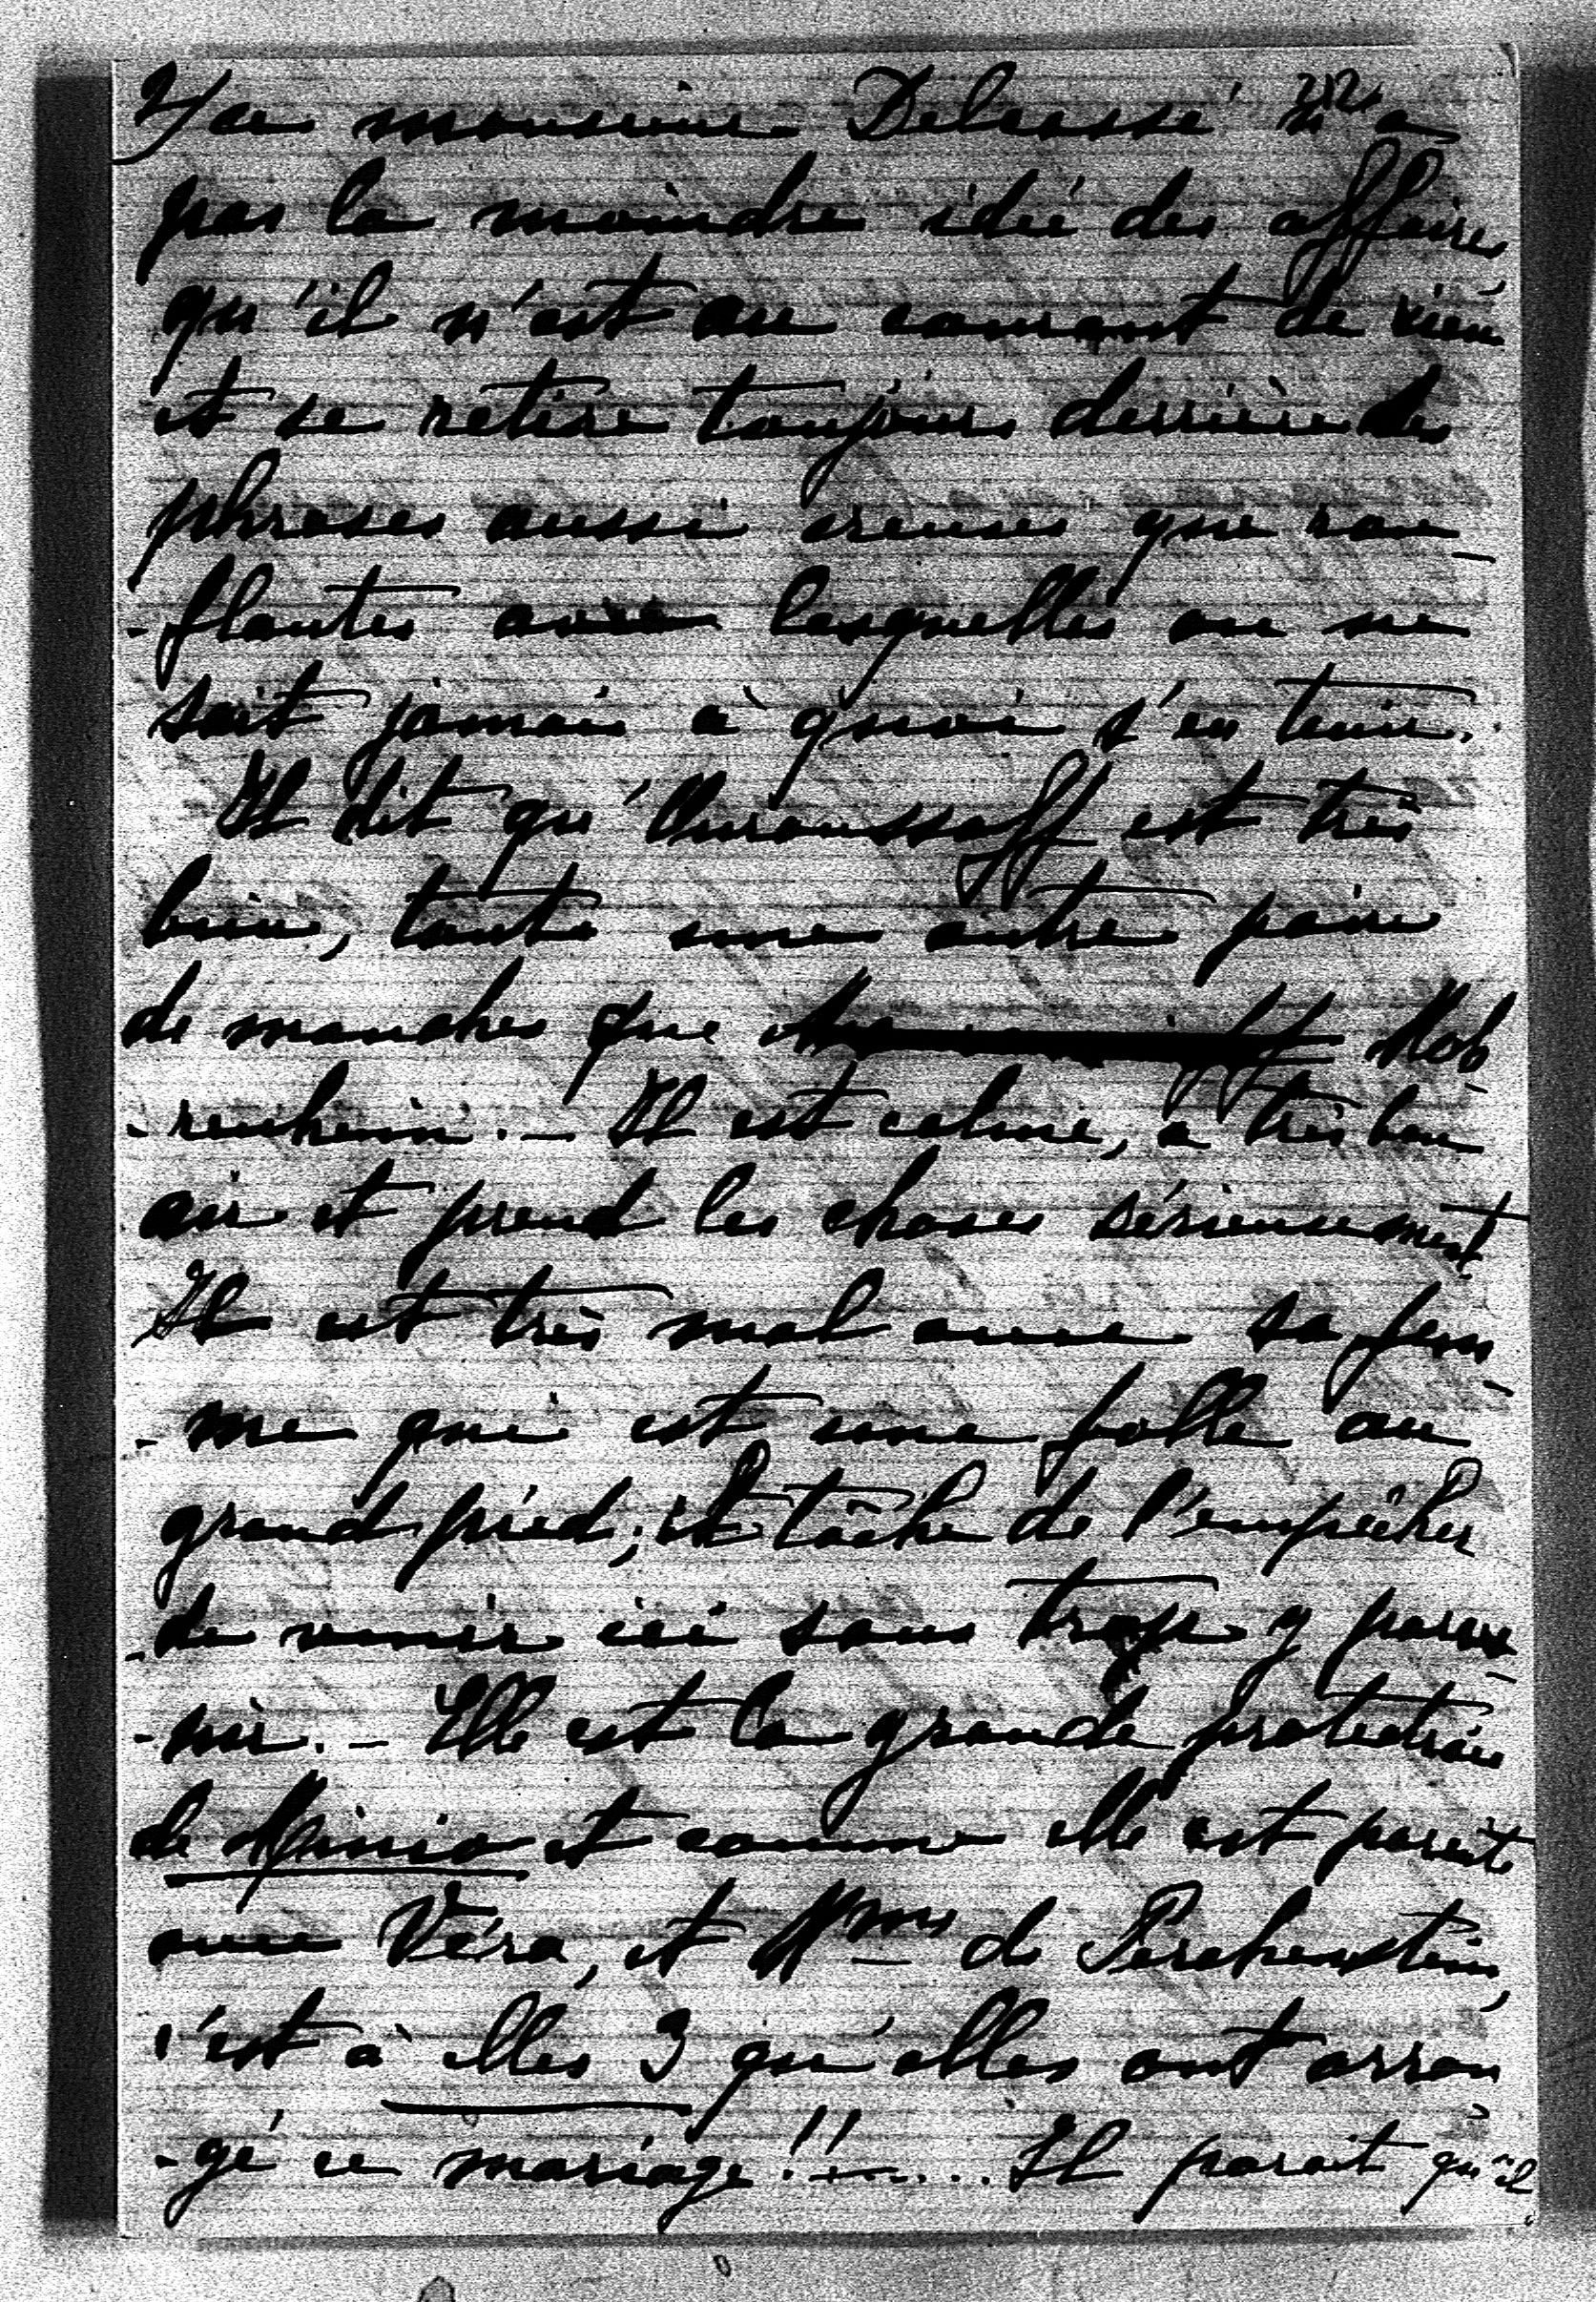 2/ ce monsieur Delcassé n'a
212
pas la moindre idée des affaires
qu'il n'est au courant de rien
et se retire toujours derrière des
phrases aussi creuses que ron-
-flantes avec lesquelles on ne
sait jamais à quoi s'en tenir.
Il dit qu'Ouroussoff est très
bien, toute une autre paire
de manches que Moh-
-renheim. – Il est calme, a très bon
air et prend les choses sérieusement
Il est très mal avec sa fem-
-me qui est une folle au
grand pied; il tâche de l'empêcher
de venir ici sans trop y parve-
-nir. – Elle est la grande protectrice
de Minia et comme elle est parente
avec Véra, et Mme de
c'est à elles 3 qu'elles ont arran-
-gé ce mariage!!..... Il parait qu'il